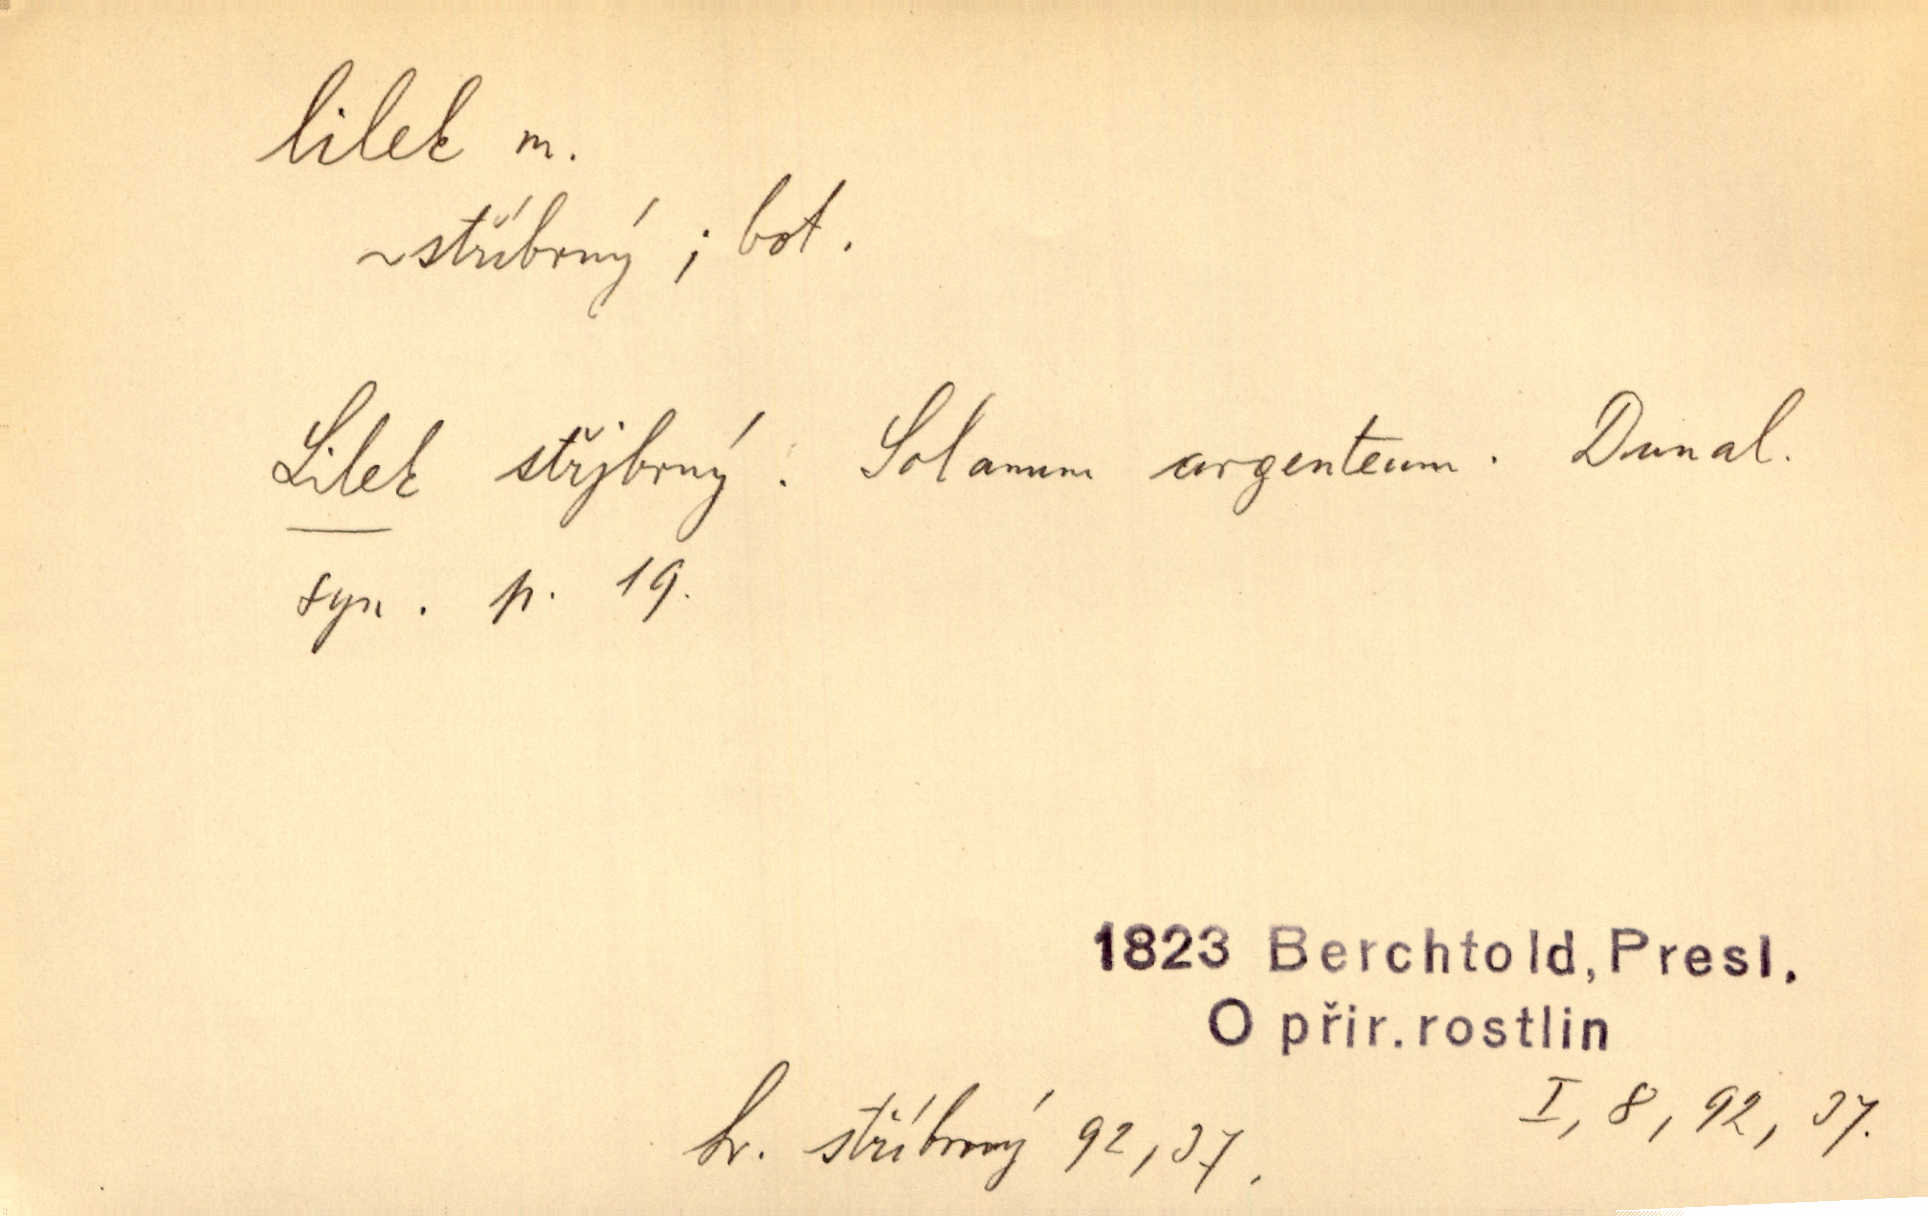 lilek m.
~ stříbrný ; bot.
Lilek střjbrný. Solanum argenteum. Dunal.
syn. p. 19.
1823 Berchtold, Presl.
O přir. rostlin
I, 8, 92, 37.
hr. stříbrný 92, 37.